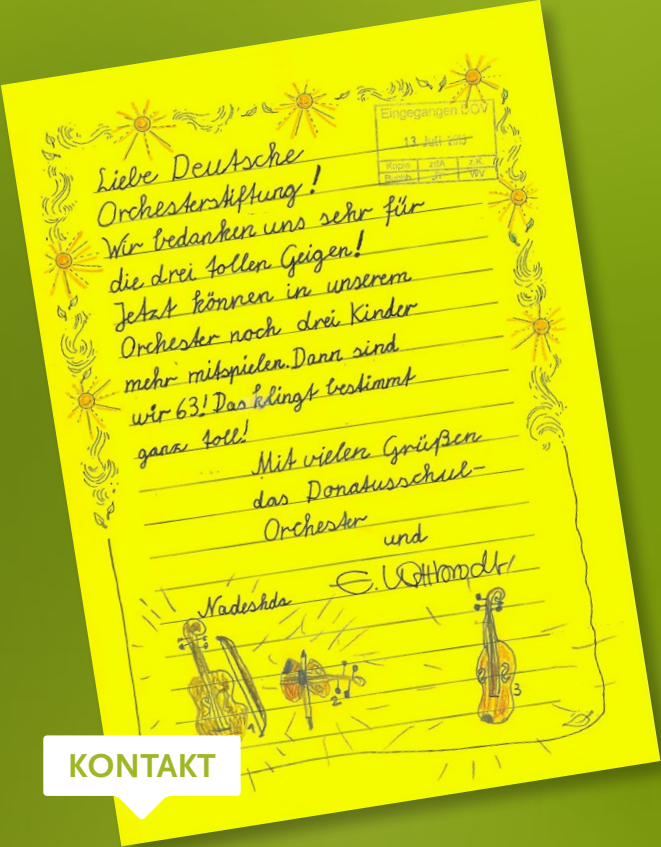 Eingegangen DOV
13. Juli
Kopie zdA z.K.
WV
Liebe Deutsche
Orchesterstiftung!
Wir bedanken uns sehr für
die drei tollen Geigen!
Jetzt können in unserem
Orchester noch drei Kinder
mehr mitspielen. Dann sind
wir 63! Das klingt bestimmt
ganz toll!
Mit vielen Grüßen
das Donatusschul-
Orchester
und
Nadeshda
1
2
3
KONTAKT